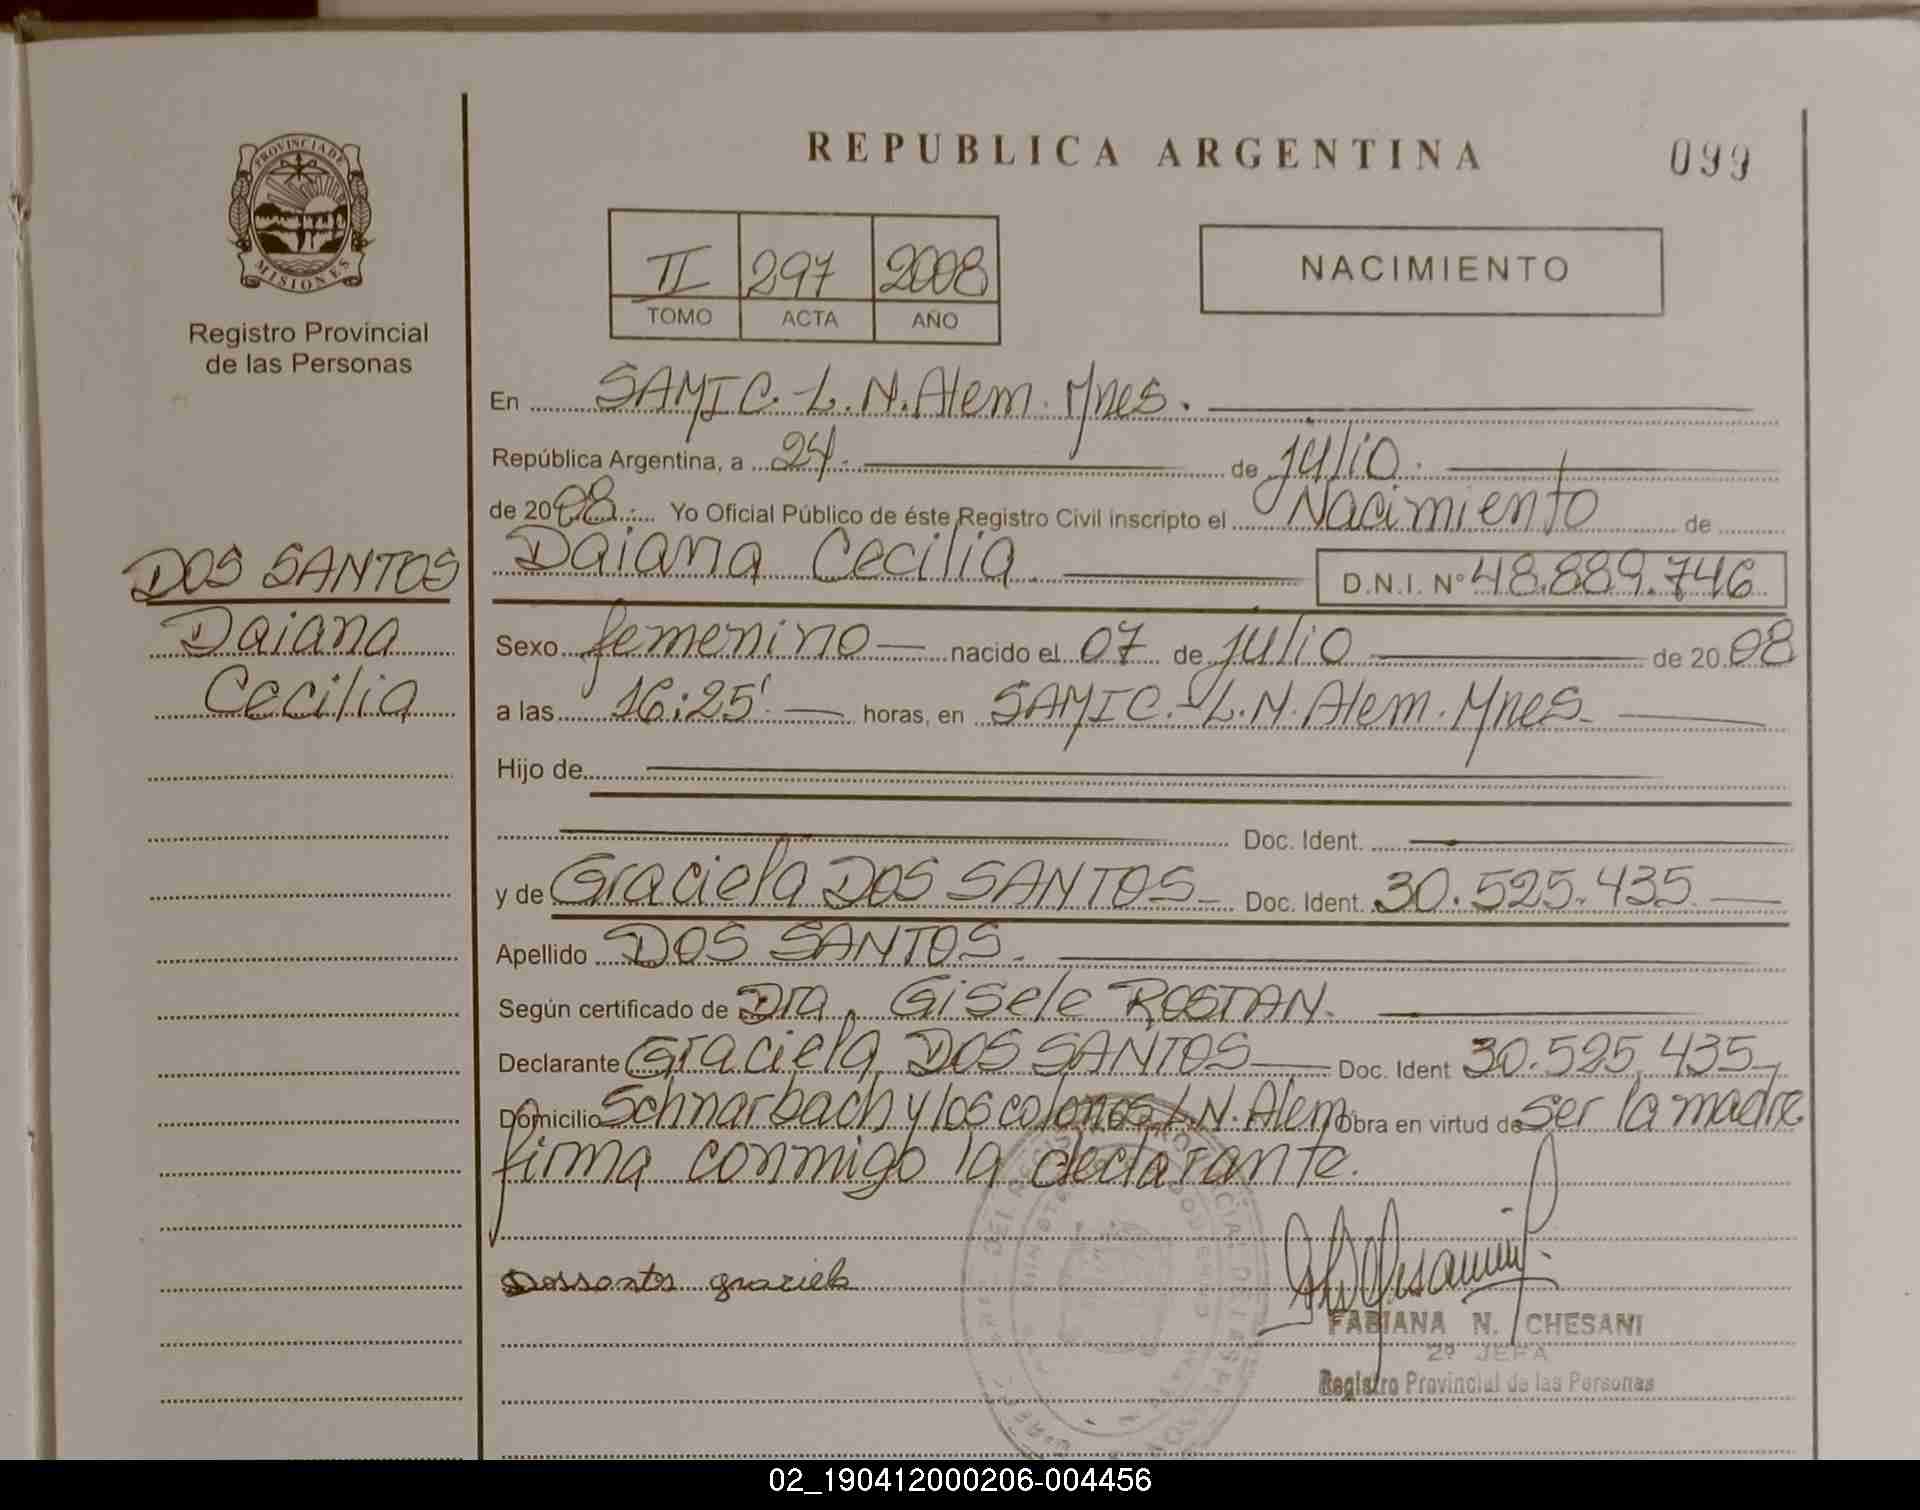 PROVINCIA DE
MISIONES
Registro Provincial
de las Personas
DOS SANTOS
Daiana
Cecilia
REPUBLICA ARGENTINA
099
II 297 2008
TOMO ACTA AÑO
NACIMIENTO
En SAMIC. L.N.Alem. Mnes.
República Argentina, a 24. de julio.
de 2008. Yo Oficial Público de éste Registro Civil inscripto el Nacimiento de
Daiana Cecilia D.N.I. Nº 48.889.746
Sexo femenino nacido el 07 de julio de 2008
a las 16:25' horas, en SAMIC. L.N. Alem. Mnes.
Hijo de
Doc. Ident.
y de Graciela DOS SANTOS Doc. Ident. 30.525.435
Apellido DOS SANTOS.
Según certificado de Dra. Gisele ROSTAN.
Declarante Graciela DOS SANTOS Doc. Ident 30.525.435
Domicilio Schnarbach y los colonos L.N. Alem Obra en virtud de ser la madre
firma conmigo la declarante.
Dossants graciela
FABIANA N. CHESANI
2º JEFA
Registro Provincial de las Personas
02_190412000206-004456